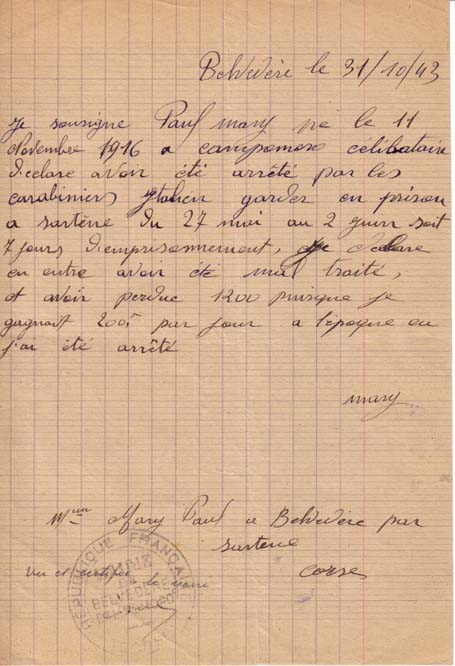 Belvédère le 31/10/43
Je sousigne Paul mary né le 11
Novembre 1916 a campomoro célibataire
declare avoir été arrêté par les
carabiniers Italien garder en prison
a sartène du 27 mai au 2 juin soit
7 jours d'emprisonnement, je declare
en outre avoir été mal traité,
et avoir perdue 1200 puisque je
gagnait 200f par jour a l'epoque ou
j'ai été arrêté
mary
Mary Paul a Belvédère par
sartène
corse
Vu et certifié le Maire
REPUBLIQUE FRANCAISE
MAIRIE
DE
BELVEDERE
CAMPOMORO